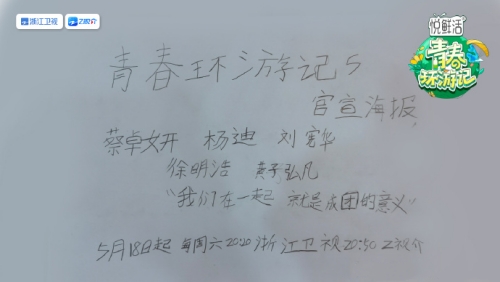 浙江卫视 Z视介
悦鲜活
青春环游记
青春环游记5
官宣海报
蔡卓妍 杨迪 刘宪华
徐明浩 黄子弘凡
“我们在一起 就是成团的意义”
5月18日起 每周六2020 浙江卫视 20:50 Z视介